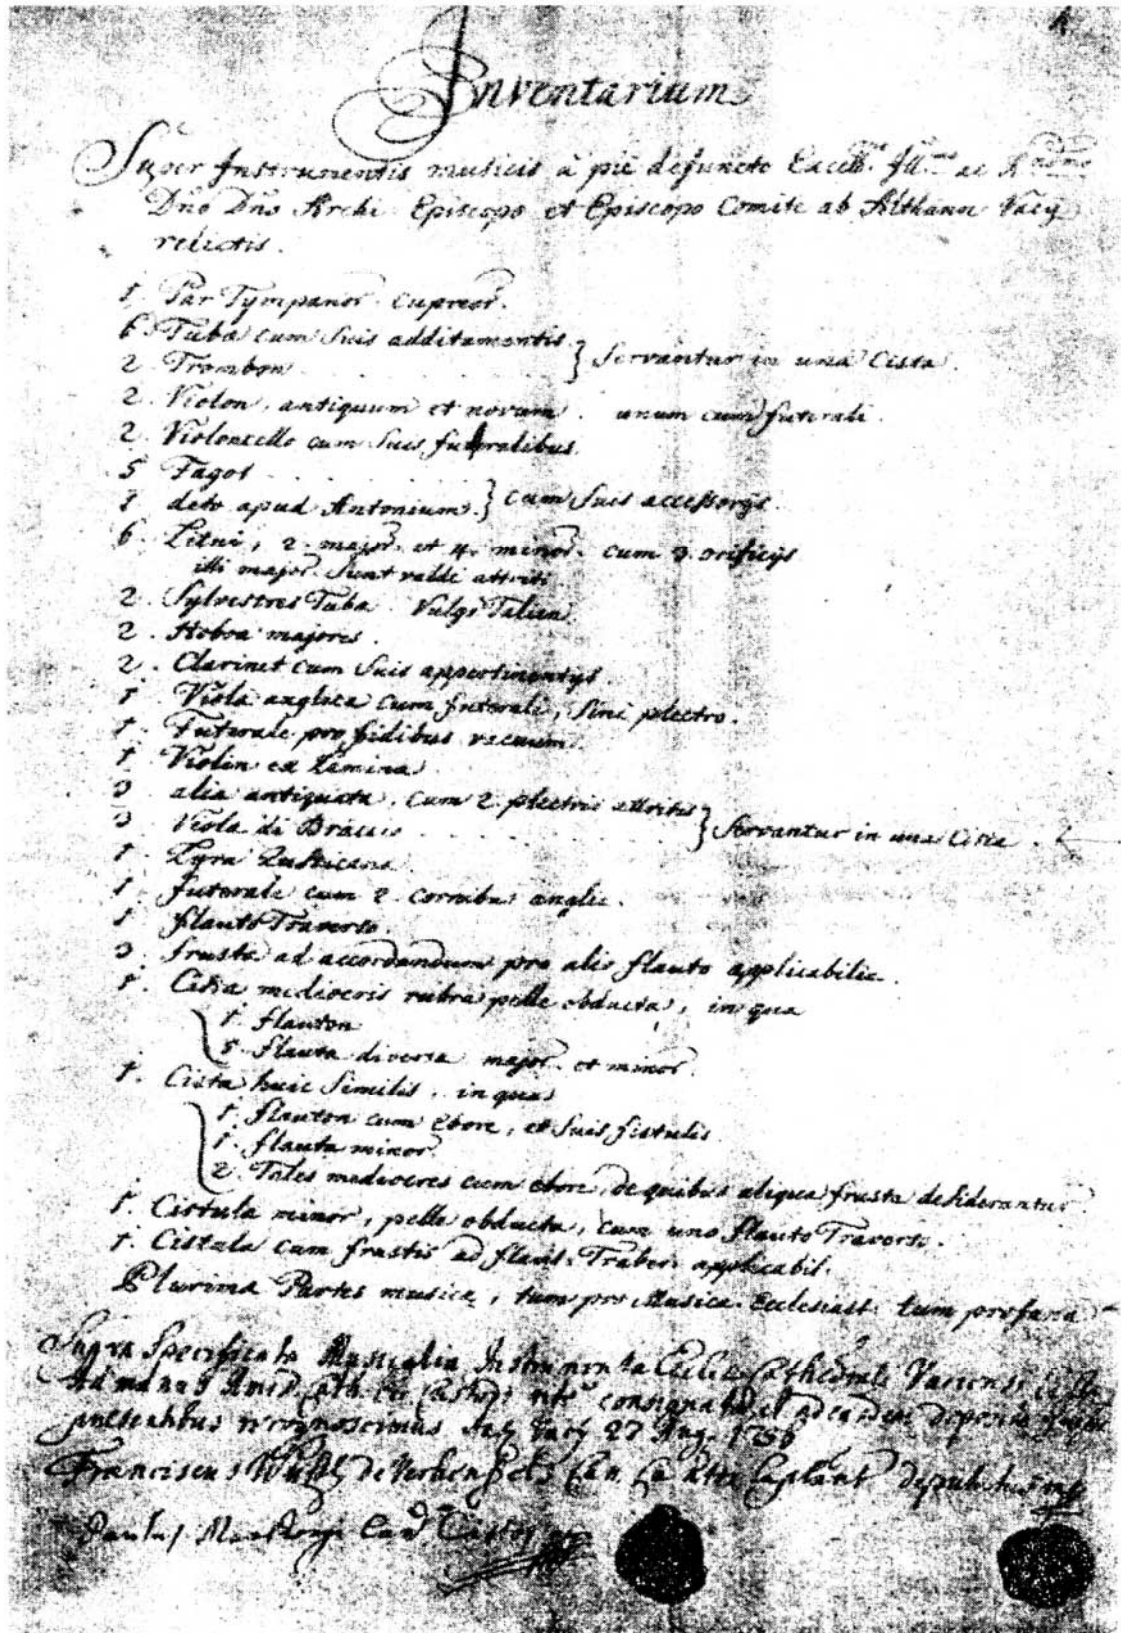 Inventarium
Super Instrumentis musicis à piè defuncto Excell. Ill. ac R
Dño Dño Archi Episcopo et Episcopo Comite ab Althann Vacÿ
relictis.
1. Par Tympanor. cupreor.
6. Tuba cum suis additamentis } Servantur in una Cista.
2. Trombon
2. Violon, antiquum et novum. unum cum futerali.
2. Violoncello cum suis futeralibus.
5 Fagot } cum suis accessorÿs.
1 deto apud Antonium.
6. Litui, 2. major. et 4. minor. cum 3. orificÿs
illi major. sunt valde attriti.
2. Sylvestres Tuba. Vulgo
2. Hoboa majores.
2. Clarinet cum suis appertinentÿs.
1. Viola anglica cum futerali, sine plectro.
1. Futerale pro fidibus vacuum.
1. Violin ex Lamina
3 alia antiquata, cum 2 plectris attritis } Servantur in una Cista.
3 Viola di Braccio
1. Lyra Rusticana.
1. futerale cum 2. cornibus anglic.
1 flauto Traverso.
3. frusta ad accordandum pro alis flauto applicabilia.
1. Cista mediocris rubra pelle obducta, in qua
1. flauton
5. flauta diversa major. et minor.
1. Cista huic similis, in qua
1. flauton cum ebore, et suis fistulis
1. flauta minor.
2. Tales mediocres cum ebore, de quibus aliqua frusta desiderantur.
1. Cistula minor, pelle obducta, cum uno flauto Traverso.
1. Cistula cum frustis ad flaut. Traver. applicabil.
Plurima Partes musica, tum pro Musica Ecclesiast. tum profana
Supra Specificata Musicalia Instrumenta Eccl. Cathedrali Vaciensi
Ad manus consignata, et ad eandem deposita
praesentibus recognoscimus Vacÿ 27 Aug. 1756
Franciscus de Can. deputatus
Paulus Can. Custos